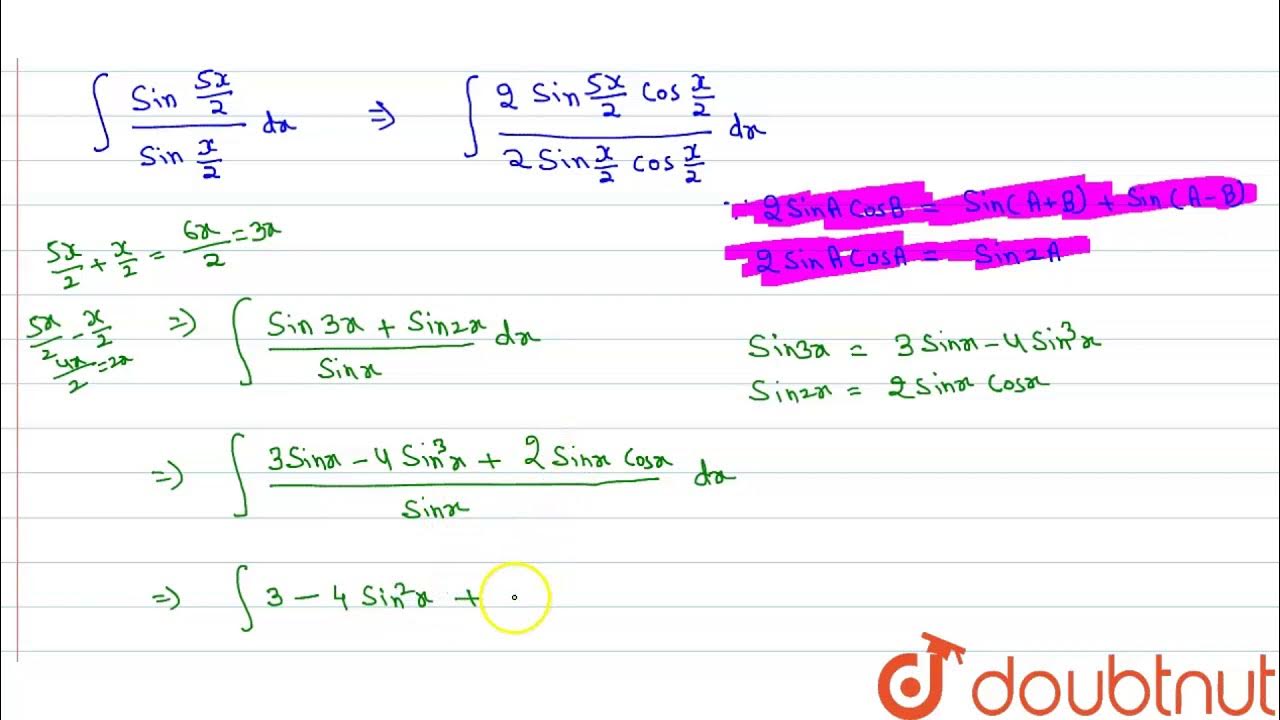 ∫ Sin 5x/2 / Sin x/2 dx ⇒ ∫ 2 Sin 5x/2 Cos x/2 / 2 Sin x/2 cos x/2 dx
∵ 2 Sin A Cos B = Sin(A+B) + Sin(A-B)
2 Sin A Cos A = Sin 2A
5x/2 + x/2 = 6x/2 = 3x
5x/2 - x/2
4x/2 = 2x
⇒ ∫ Sin 3x + Sin 2x / Sin x dx
Sin 3x = 3 Sin x - 4 Sin³x
Sin 2x = 2 Sin x Cos x
⇒ ∫ 3 Sin x - 4 Sin³x + 2 Sin x Cos x / Sin x dx
⇒ ∫ 3 - 4 Sin²x +
doubtnut